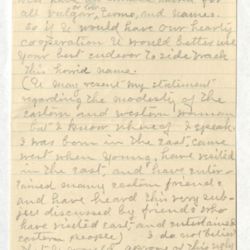 all vulgar, terms, and names.
So if we would have our hearty
cooperation we would better use
your best endevor to side track
this horrid name.
(We may resent my statement
regarding the modesty of the
eastern and western woman
but I know whereof I speak.
I was born in the east, came
west when young, have visited
in the east, and have enter-
tained many eastern friends
and have heard this very sub-
ject discussed by friends who
have visited east, and entertained
eastern people) I do not believe